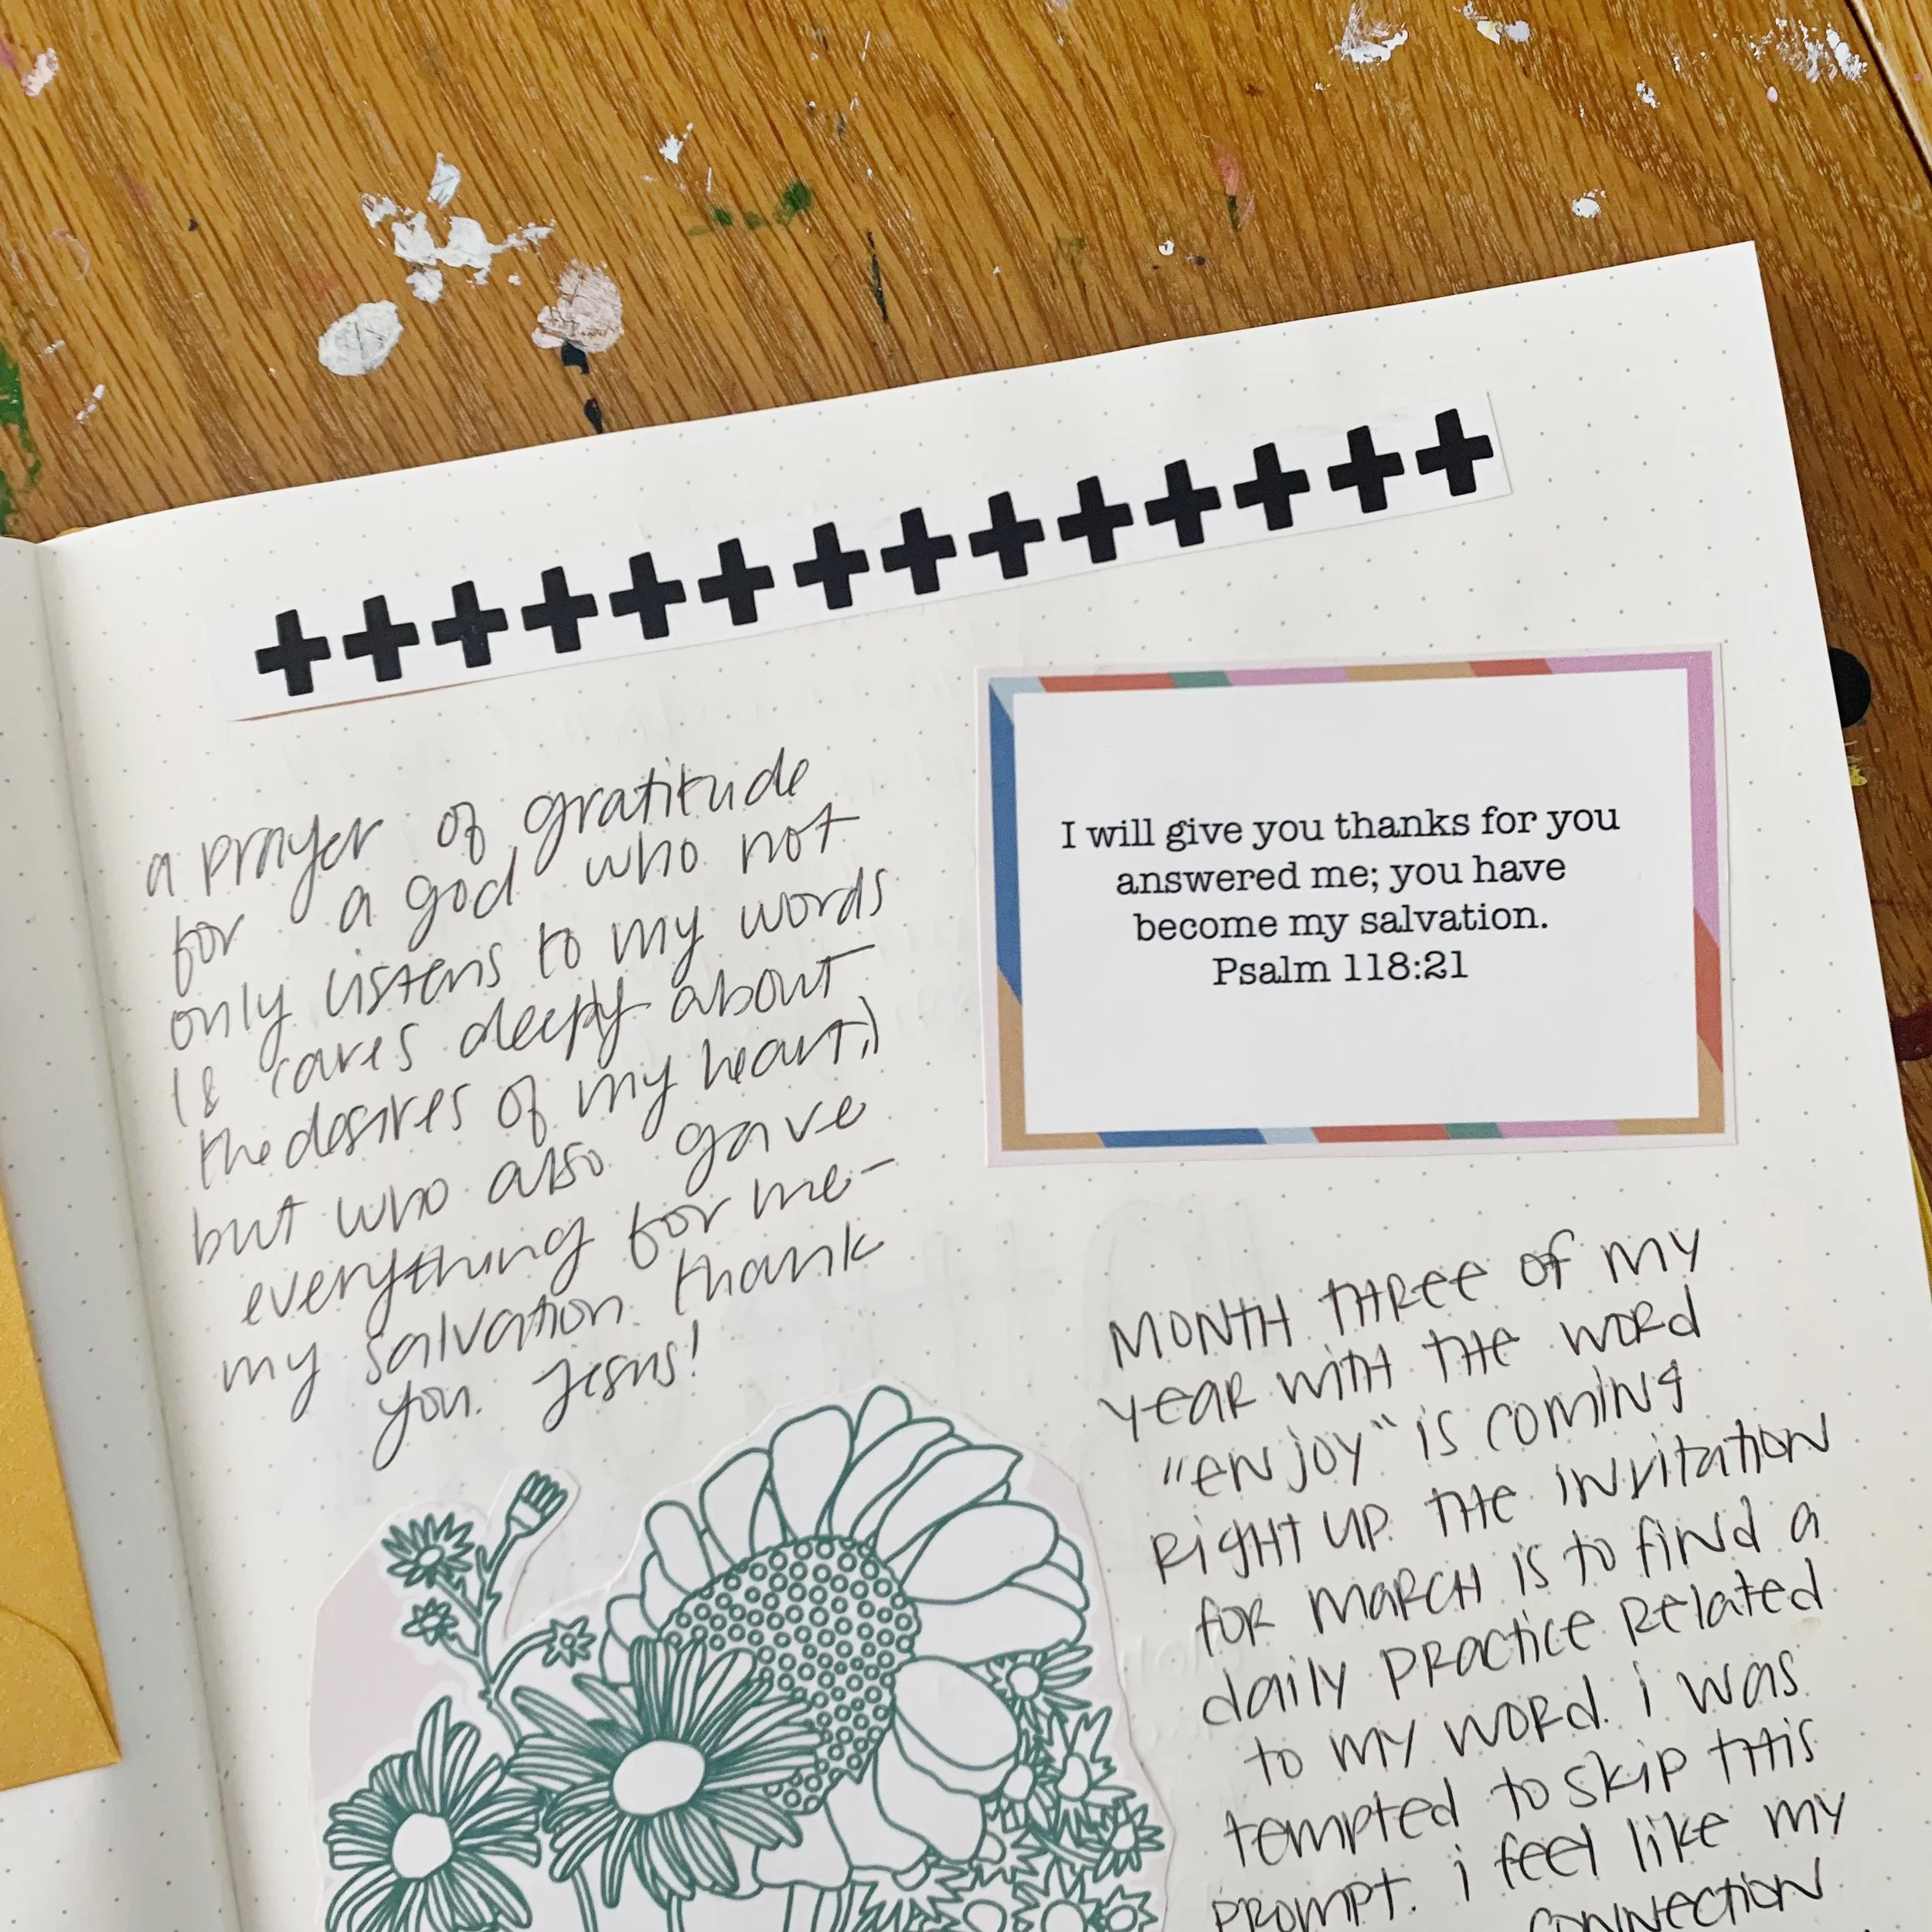 a prayer of gratitude
for a god who not
only listens to my words
(& cares deeply about
the desires of my heart,)
but who also gave
everything for me-
my salvation. thank
you. Jesus!
I will give you thanks for you
answered me; you have
become my salvation.
Psalm 118:21
MONTH THREE of MY
YEAR WITH THE WORD
"ENJOY" is COMING
RIGHT UP. THE INVITATION
FOR MARCH IS TO FIND A
daily PRACTICE RELATED
TO MY WORD. i WAS
TEMPTED TO SKIP THIS
PROMPT. i feel like MY
CONNECTION